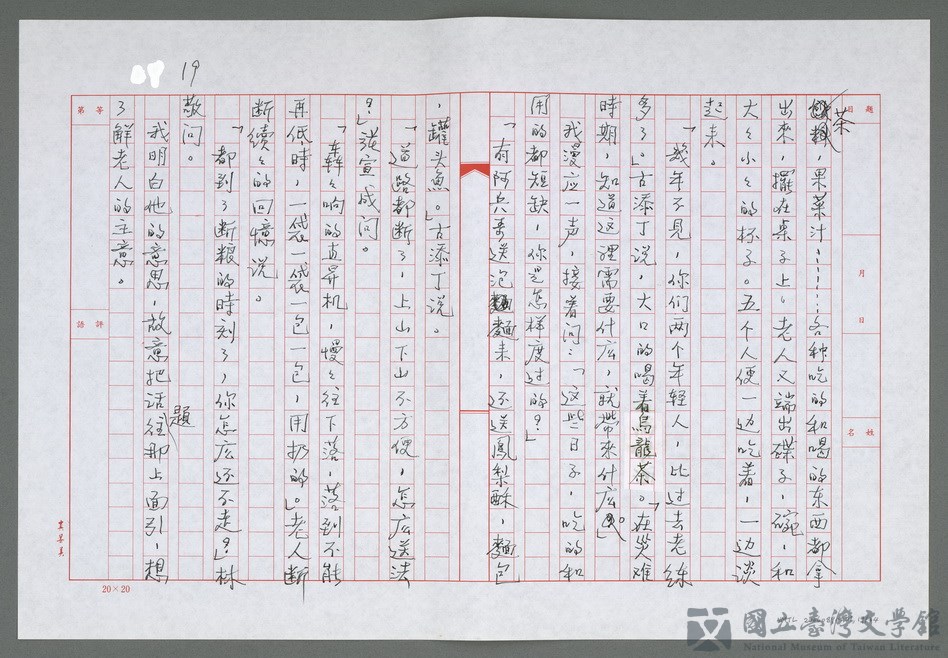 題目
月
日
姓名
茶
，果菜汁，………各种吃的和喝的东西都拿
出來，擺在桌子上。老人又端出碟子，碗，和
大々小々的杯子。五个人便一边吃着，一边谈
起未。
「幾年不見，你们两个年轻人，比过去老练
多了。」古添丁说，大口的喝着烏龍茶。「在災难
時期，知道这裡需要什庅，就帶來什庅。」
我漫应一声，接着问：「这些日子，吃的和
用的都短缺，你是怎样度过的？」
「有阿兵哥送泡麵未，还送鳳梨酥，麵包
，罐头魚。」古添丁说。
「道路都断了，上山下山不方便，怎庅送法
？」張宣成问。
「轟々响的直昇机，慢々往下落，落到不能
再低時，一袋一袋一包一包，用扔的。」老人断
断续々的回憶说。
「都到了断粮的時刻了，你怎庅还不走？」林
敬问。
我明白他的意思，故意把话題往那上面引，想
了解老人的主意。
19
第
等
評語
20×20
國立臺灣文學館
National Museum of Taiwan Literature